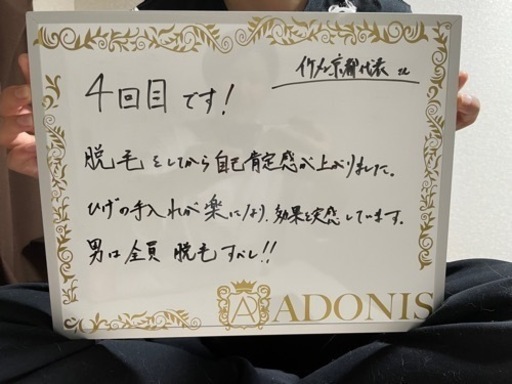 イケメン京都代表 さん
4回目です!
脱毛をしてから自己肯定感が上がりました。
ひげの手入れが楽になり、効果を実感しています。
男は全員脱毛すべし!!
A ADONIS